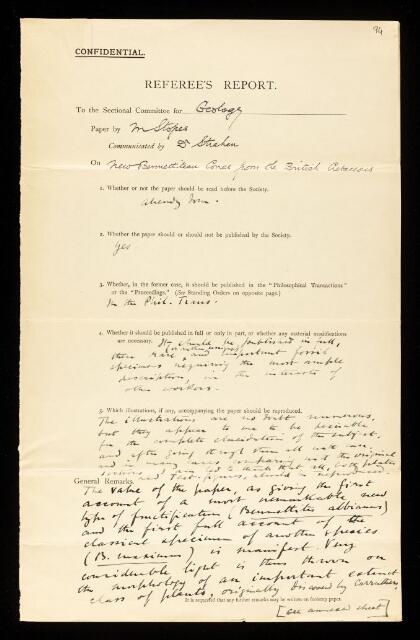 94
CONFIDENTIAL.
REFEREE'S REPORT.
To the Sectional Committee for Geology
Paper by M Stopes
Communicated by Dr Strahan
On New Bennettitean Cones from the British Cretaceous
1. Whether or not the paper should be read before the Society.
already done.
2. Whether the paper should or should not be published by the Society.
Yes
3. Whether, in the former case, it should be published in the "Philosophical Transactions"
or the "Proceedings." (See Standing Orders on opposite page.)
In the Phil. Trans.
4. Whether it should be published in full or only in part, or whether any material modifications
are necessary. It should be published in full,
these rare and important fossil
specimens requiring the most ample
description, in the interests of
other workers.
5. Which illustrations, if any, accompanying the paper should be reproduced.
The illustrations are no doubt numerous,
but they appear to me to be desirable
for the complete elucidation of the subject,
and after going through them all with care,
and in many cases comparing with the original
sections I am led to think that all, both plates
and text-figures, should be reproduced.
General Remarks.
The value of the paper, as giving the first
account of a most remarkable new
type of fructification (Bennettites albianus)
and the first full account of the
classical specimen of another species
(B. maximus) is manifest. Very
considerable light is thus thrown on
the morphology of an important extinct
class of plants, originally discovered by Carruthers.
It is requested that any further remarks may be written on foolscap paper.
[see annexed sheet]